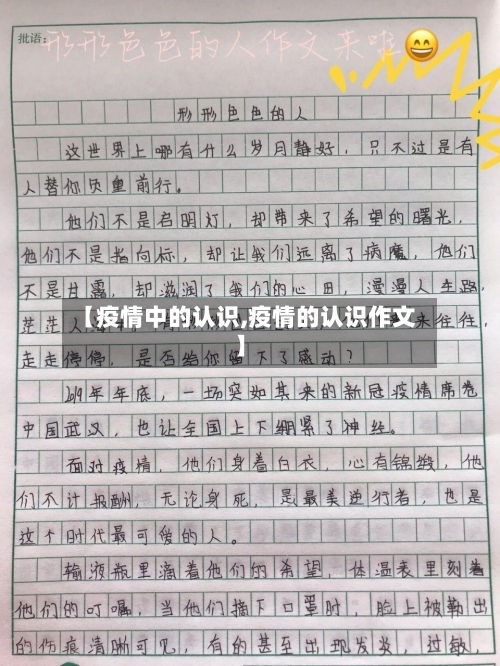 批语：
形形色色的人作文来啦
形形色色的人
这世界上哪有什么岁月静好，只不过是有
人替你负重前行。
他们不是启明灯，却带来了希望的曙光，
他们不是指向标，却让我们远离了病魔，他们
不是甘露，却滋润了我们的心田，漫漫人生路，
茫茫人 来往往，
【疫情中的认识,疫情的认识作文
】
走走停停，是否给你留下了感动？
2019年年底，一场突如其来的新冠疫情席卷
中国武汉，也让全国上下绷紧了神经。
面对疫情，他们身着白衣，心有锦缎，他
们不计报酬，无论身死，是最美逆行者，也是
这个时代最可爱的人。
输液瓶里滴着他们的希望，体温表里刻着
他们的叮嘱，当他们摘下口罩时，脸上被勒出
的伤痕清晰可见，有的甚至出现发炎，过敏，